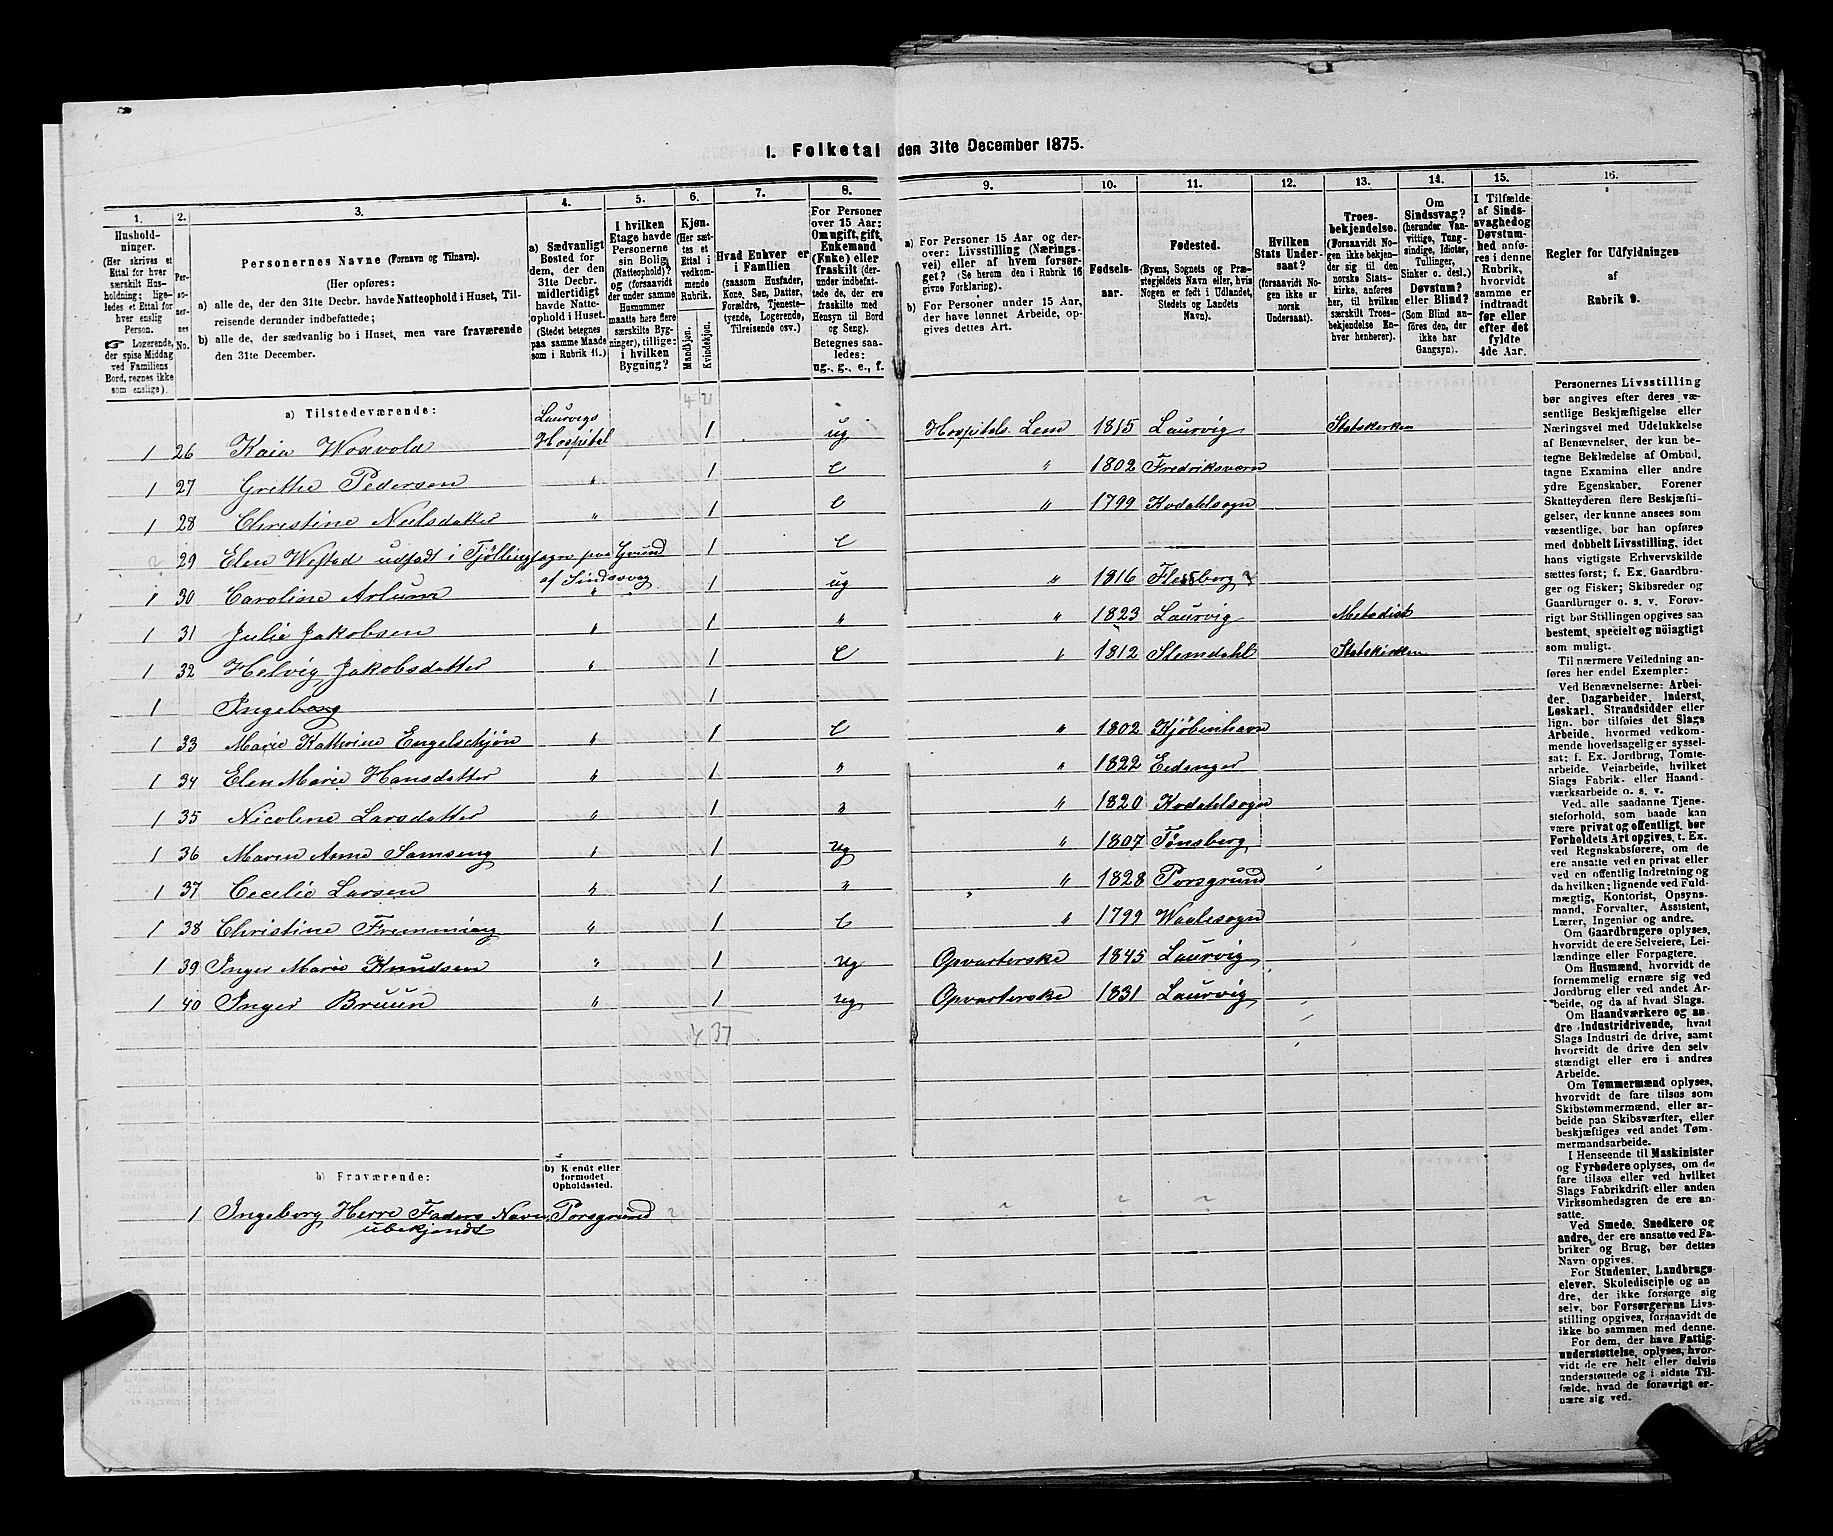 1. Folketal den 31te December 1875.
1. 2. 3. 4. 5. 6. 7. 8. 9. 10. 11. 12. 13. 14. 15. 16.
Husholdninger.
(Her skrives et
Ettal for hver
særskilt Husholdning;
ligeledes et Ettal for
hver enslig
Person.
☞ Logerende,
der spise Middag
ved Familiens
Bord, regnes ikke
som enslige).
Personernes No.
Personernes Navne (Fornavn og Tilnavn).
(Her opføres:
a) alle de, der den 31te Decbr. havde Natteophold i Huset, Tilreisende derunder indbefattede;
b) alle de, der sædvanlig bo i Huset, men vare fraværende
den 31te December.
a) Sædvanligt
Bosted for
dem, der den
31te Decbr.
midlertidigt
havde Natteophold i Huset.
(Stedet betegnes
paa samme Maade
som i Rubrik 11.)
I hvilken
Etage havde
Personerne
sin Bolig
(Natteophold)?
og (forsaavidt
der under samme
Husnummer
maatte høre flere
særskilte Bygninger), tillige:
i hvilken
Bygning?
Kjøn.
(Her sættes et
Ettal i
vedkommende
Rubrik.
Mandkjøn.
Kvindekjøn.
Hvad Enhver er
i Familien
(saasom Husfader,
Kone, Søn, Datter,
Forældre, Tjenestetyende, Logerende,
Tilreisende osv.)
For Personer
over 15 Aar:
Om ugift, gift,
Enkemand
(Enke) eller
fraskilt (derunder indbefattede, de, der ere
fraskilte med
Hensyn til Bord
og Seng).
Betegnes saaledes:
ug., g., e., f.
a) For Personer 15 Aar og derover: Livsstilling (Næringsvei) eller af hvem forsørget? (Se herom den i Rubrik 16
givne Forklaring).
b) For Personer under 15 Aar,
der have lønnet Arbeide, opgives dettes Art.
Fødselsaar.
Fødested.
(Byens, Sognets og Præstegjeldets Navn eller, hvis
Nogen er født i Udlandet,
Stedets og Landets
Navn).
Hvilken
Stats Undersaat?
(forsaavidt Nogen ikke er
norsk
Undersaat).
Troesbekjendelse.
(Forsaavidt Nogen ikke bekjender sig til den
norske Statskirke, anføres
her, til hvilken
særskilt Troesbekjendelse Enhver henhører).
Om
Sindssvag?
(herunder Vanvittige, Tungsindige, Idioter,
Tullinger,
Sinker o. desl.)
Døvstum?
eller Blind?
(Som Blind anføres den, der
ikke har
Gangsyn).
I Tilfælde
af Sindssvaghed og
Døvstumhed anføres i denne
Rubrik,
hvorvidt
samme er
indtraadt
før eller
efter det
fyldte
4de Aar.
Regler for Udfyldningen
af
Rubrik 9.
a) Tilstedeværende: 4 21
1 26 Kaia Woxvold Laurvigs Hospital 1 ug Hospitals Lem 1815 Laurvig Statskirken
1 27 Grethe Pedersen " 1 E " 1802 Fredriksværn
1 28 Christine Neilsdatter " 1 E " 1799 Kodahlsogn
29 Elen Westad udsadt i Tjøllingsogn paa Grund 1 E
af Sindssvag
1 30 Caroline Arlum " 1 ug " 1816
1 31 Julie Jakobsen " 1 " " 1823 Laurvig Metodisk
1 32 Helvig Jakobsdatter " 1 E " 1812 Slemdahl Statskirken
1 Ingeborg 1
1 33 Marie Kathrine Engelschjøn " 1 E " 1802 Kjøbinhavn
1 34 Elen Marie Hansdatter " 1 " " 1822 Eidanger
1 35 Nicoline Larsdatter " 1 " " 1820 Kodahlsogn
1 36 Maren Anne Samsing " 1 ug " 1807 Tønsberg
1 37 Cecelie Larsen " 1 " " 1828 Porsgrund
1 38 Christine Fremming " 1 E " 1799 Waalesogn
1 39 Inger Marie Knudsen " 1 ug Opvarterske 1845 Laurvig
1 40 Inger Bruun " 1 ug Opvarterske 1831 Laurvig
4 37
b) Fraværende: b) Kjendt eller
formodet
Opholdssted.
1 Ingeborg Herre Faders Navn Porsgrund
ubekjendt
Personernes Livsstilling
bør angives efter deres væsentlige Beskjæftigelse eller
Næringsvei med Udelukkelse
af Benævnelser, der kun betegne Beklædelse af Ombud,
tagne Examina eller andre
ydre Egenskaber. Forener
Skatteyderen flere Beskjæftigelser, der kunne ansees som
væsentlige, bør han opføres
med dobbelt Livsstilling, idet
hans vigtigste Erhvervskilde
sættes først; f. Ex. Gaardbruger og Fisker; Skibsreder og
Gaardbruger o. s. v. Forøvrigt bør Stillingen opgives saa
bestemt, specielt og nöiagtigt
som muligt.
Til nærmere Veiledning anføres her endel Exempler:
Ved Benævnelserne: Arbeider, Dagarbeider, Inderst,
Løskarl, Strandsidder eller
lign. bør tilføies det Slags
Arbeide, hvormed vedkommende hovedsagelig er sysselsat; f. Ex. Jordbrug, Tomtearbeide, Veiarbeide, hvilket
Slags Fabrik- eller Haandværksarbeide o. s. v.
Ved alle saadanne Tjenesteforhold, som baade kan
være privat og offentligt, bør
Forholdets Art opgives, t. Ex.
ved Regnskabsførere, om de
ere ansatte ved en privat eller
ved en offentlig Indretning og
da hvilken; lignende ved Fuldmægtig, Kontorist, Opsynsmand, Forvalter, Assistent,
Lærer, Ingeniør og andre.
Om Gaardbrugere oplyses,
hvorvidt de ere Selveiere, Leilændinge eller Forpagtere.
Om Husmænd, hvorvidt de
fornemmelig ernære sig ved
Jordbrug eller ved andet Arbeide, og da af hvad Slags.
Om Haandværkere og andre Industridrivende, hvad
Slags Industri de drive, samt
hvorvidt de drive den selvstændigt eller ere i andres
Arbeide.
Om Tømmermænd oplyses,
hvorvidt de fare tilsøs som
Skibstømmermænd, eller arbeide paa Skibsværfter, eller
beskjæftiges ved andet Tømmermandsarbeide.
I Henseende til Maskinister
og Fyrbødere oplyses, om de
fare tilsøs eller ved hvilket
Slags Fabrikdrift eller anden
Virksomhedsgren de ere ansatte.
Ved Smede, Snedkere og
andre, der ere ansatte ved Fabriker og Brug, bør dettes
Navn opgives.
For Studenter, Landbrugselever, Skoledisciple og andre, der ikke forsørge sig
selv, bør Forsørgerens Livsstilling opgives, forsaavidt de
ikke bo sammen med denne.
For dem, der have Fattigunderstøttelse, oplyses, hvorvidt de ere helt eller delvis
understøttede og i sidste Tilfælde, hvad de forøvrigt ernære sig ved.